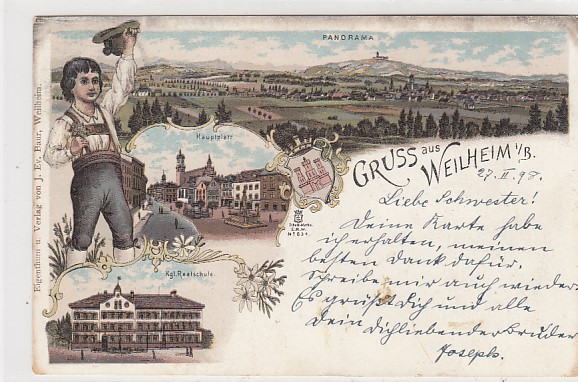 PANORAMA
Hauptplatz
GRUSS aus
WEILHEIM i/B.
27. II. 98.
Liebe Schwester!
Deine Karte habe
ich erhalten, meinen
besten Dank dafür,
Schreibe mir auch wieder
Es grüßt Dich und alle
Dein Dichliebender Bruder
Joseph.
Kgl. Realschule.
Eigenthum u. Verlag von J. Ev. Baur, Weilheim.